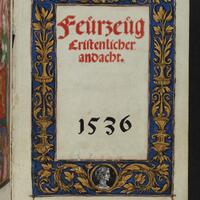 Feürzeüg
Cristenlicher
andacht.
1536